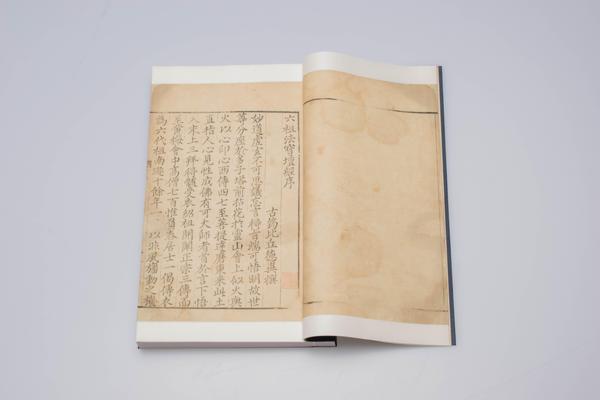 六祖法寶壇經序
古筠比丘德異撰
妙道虛玄不可思議忘言得旨端可悟明故世
尊分座於多子塔前拈花於靈山會上似火與
火以心印心西傳四七至菩提達磨東來此土
直指人心見性成佛有可大師者首於言下悟
入末上三拜得髓受衣紹祖開闡正宗三傳而
至黃梅會中高僧七百惟負舂居士一偈傳衣
爲六代祖南遯十餘年一 以非風旛動之機